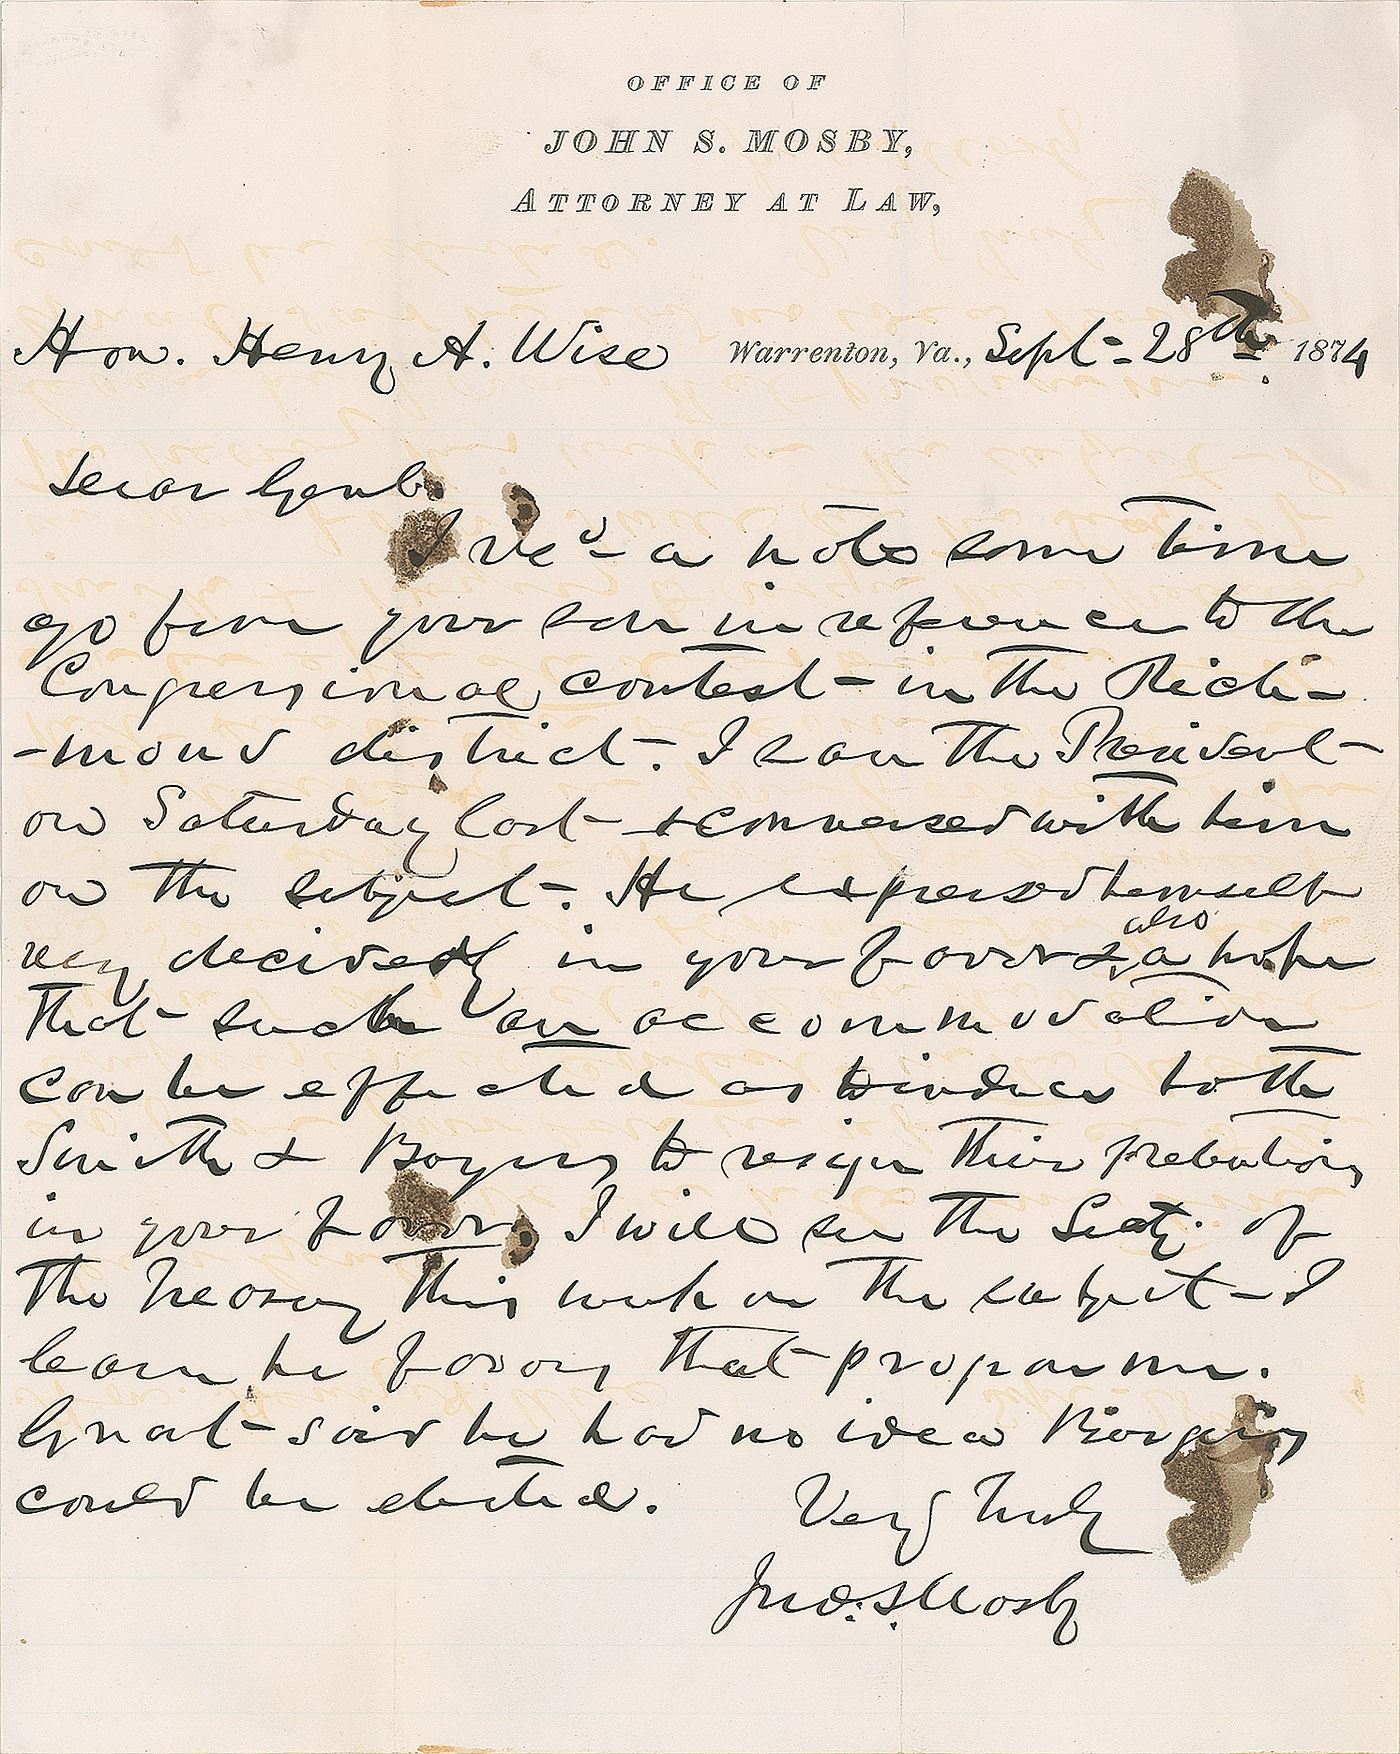 OFFICE OF
JOHN S. MOSBY,
ATTORNEY AT LAW,
Hon. Henry A. Wise Warrenton, Va., Sept - 28th. 1874
Dear Genl.
I recd - a note some time
ago from your son in reference to the
Congressional contest - in the Rich-
-mond district -. I saw the President -
on Saturday last - & conversed with him
on the subject -. He expressed himself
very decidedly in your favor & also a hope
that - such an accommodation
can be effected as to induce both
Smith & Burgess to resign their pretentions
in your favor. I will see the Secty. of
the Treasury this week on the subject - I
learn he favors that programme.
Grant - said he had no idea Burgess
could be elected. Very Truly
Jno. S. Mosby